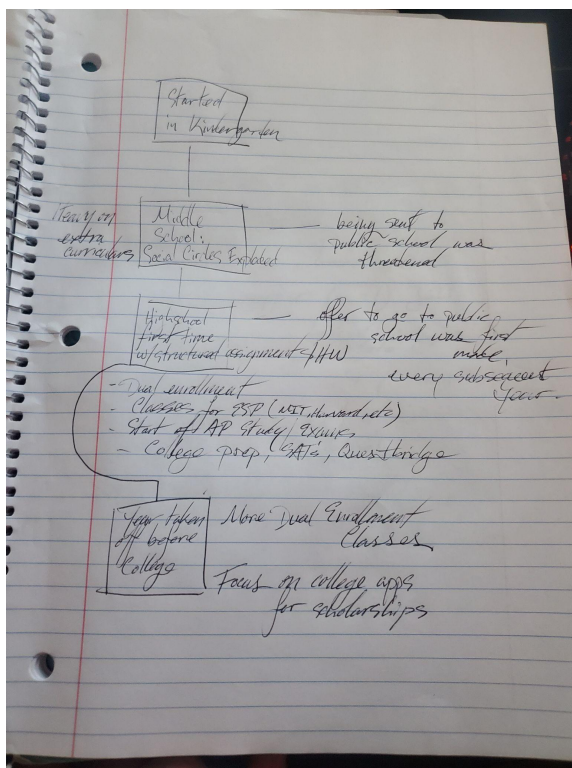 Started
in Kindergarten
Heavy on
extra
curriculars
Middle
School:
Social Circles Exploded
being sent to
public school was
threatened
Highschool
first time
w/structured assignments/HW
offer to go to public
school was first
made,
every subsequent
year.
- Dual enrollment
- Classes for ESP (MIT, Harvard, etc)
- Start of AP Study/Exams
- College prop, SATs, Questbridge
Year taken
off before
College
More Dual Enrollment
Classes
Focus on college apps
for scholarships